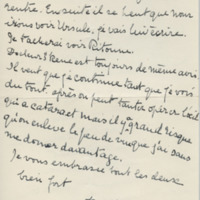 rentre. Ensuite il se peut que nous
irons voir Ursule, je vais lui écrire.
Je tacherai voir
Docteur Irene est toujours de même avis
Il veut que je continue tant que je vois
du tout après on peut tenter opérer l'œil
qui a cataracte mais il y a grand risque
qu'on enleve le peu de vue que j'ai sans
me donner davantage.
Je vous embrasse tout les deux
bien fort